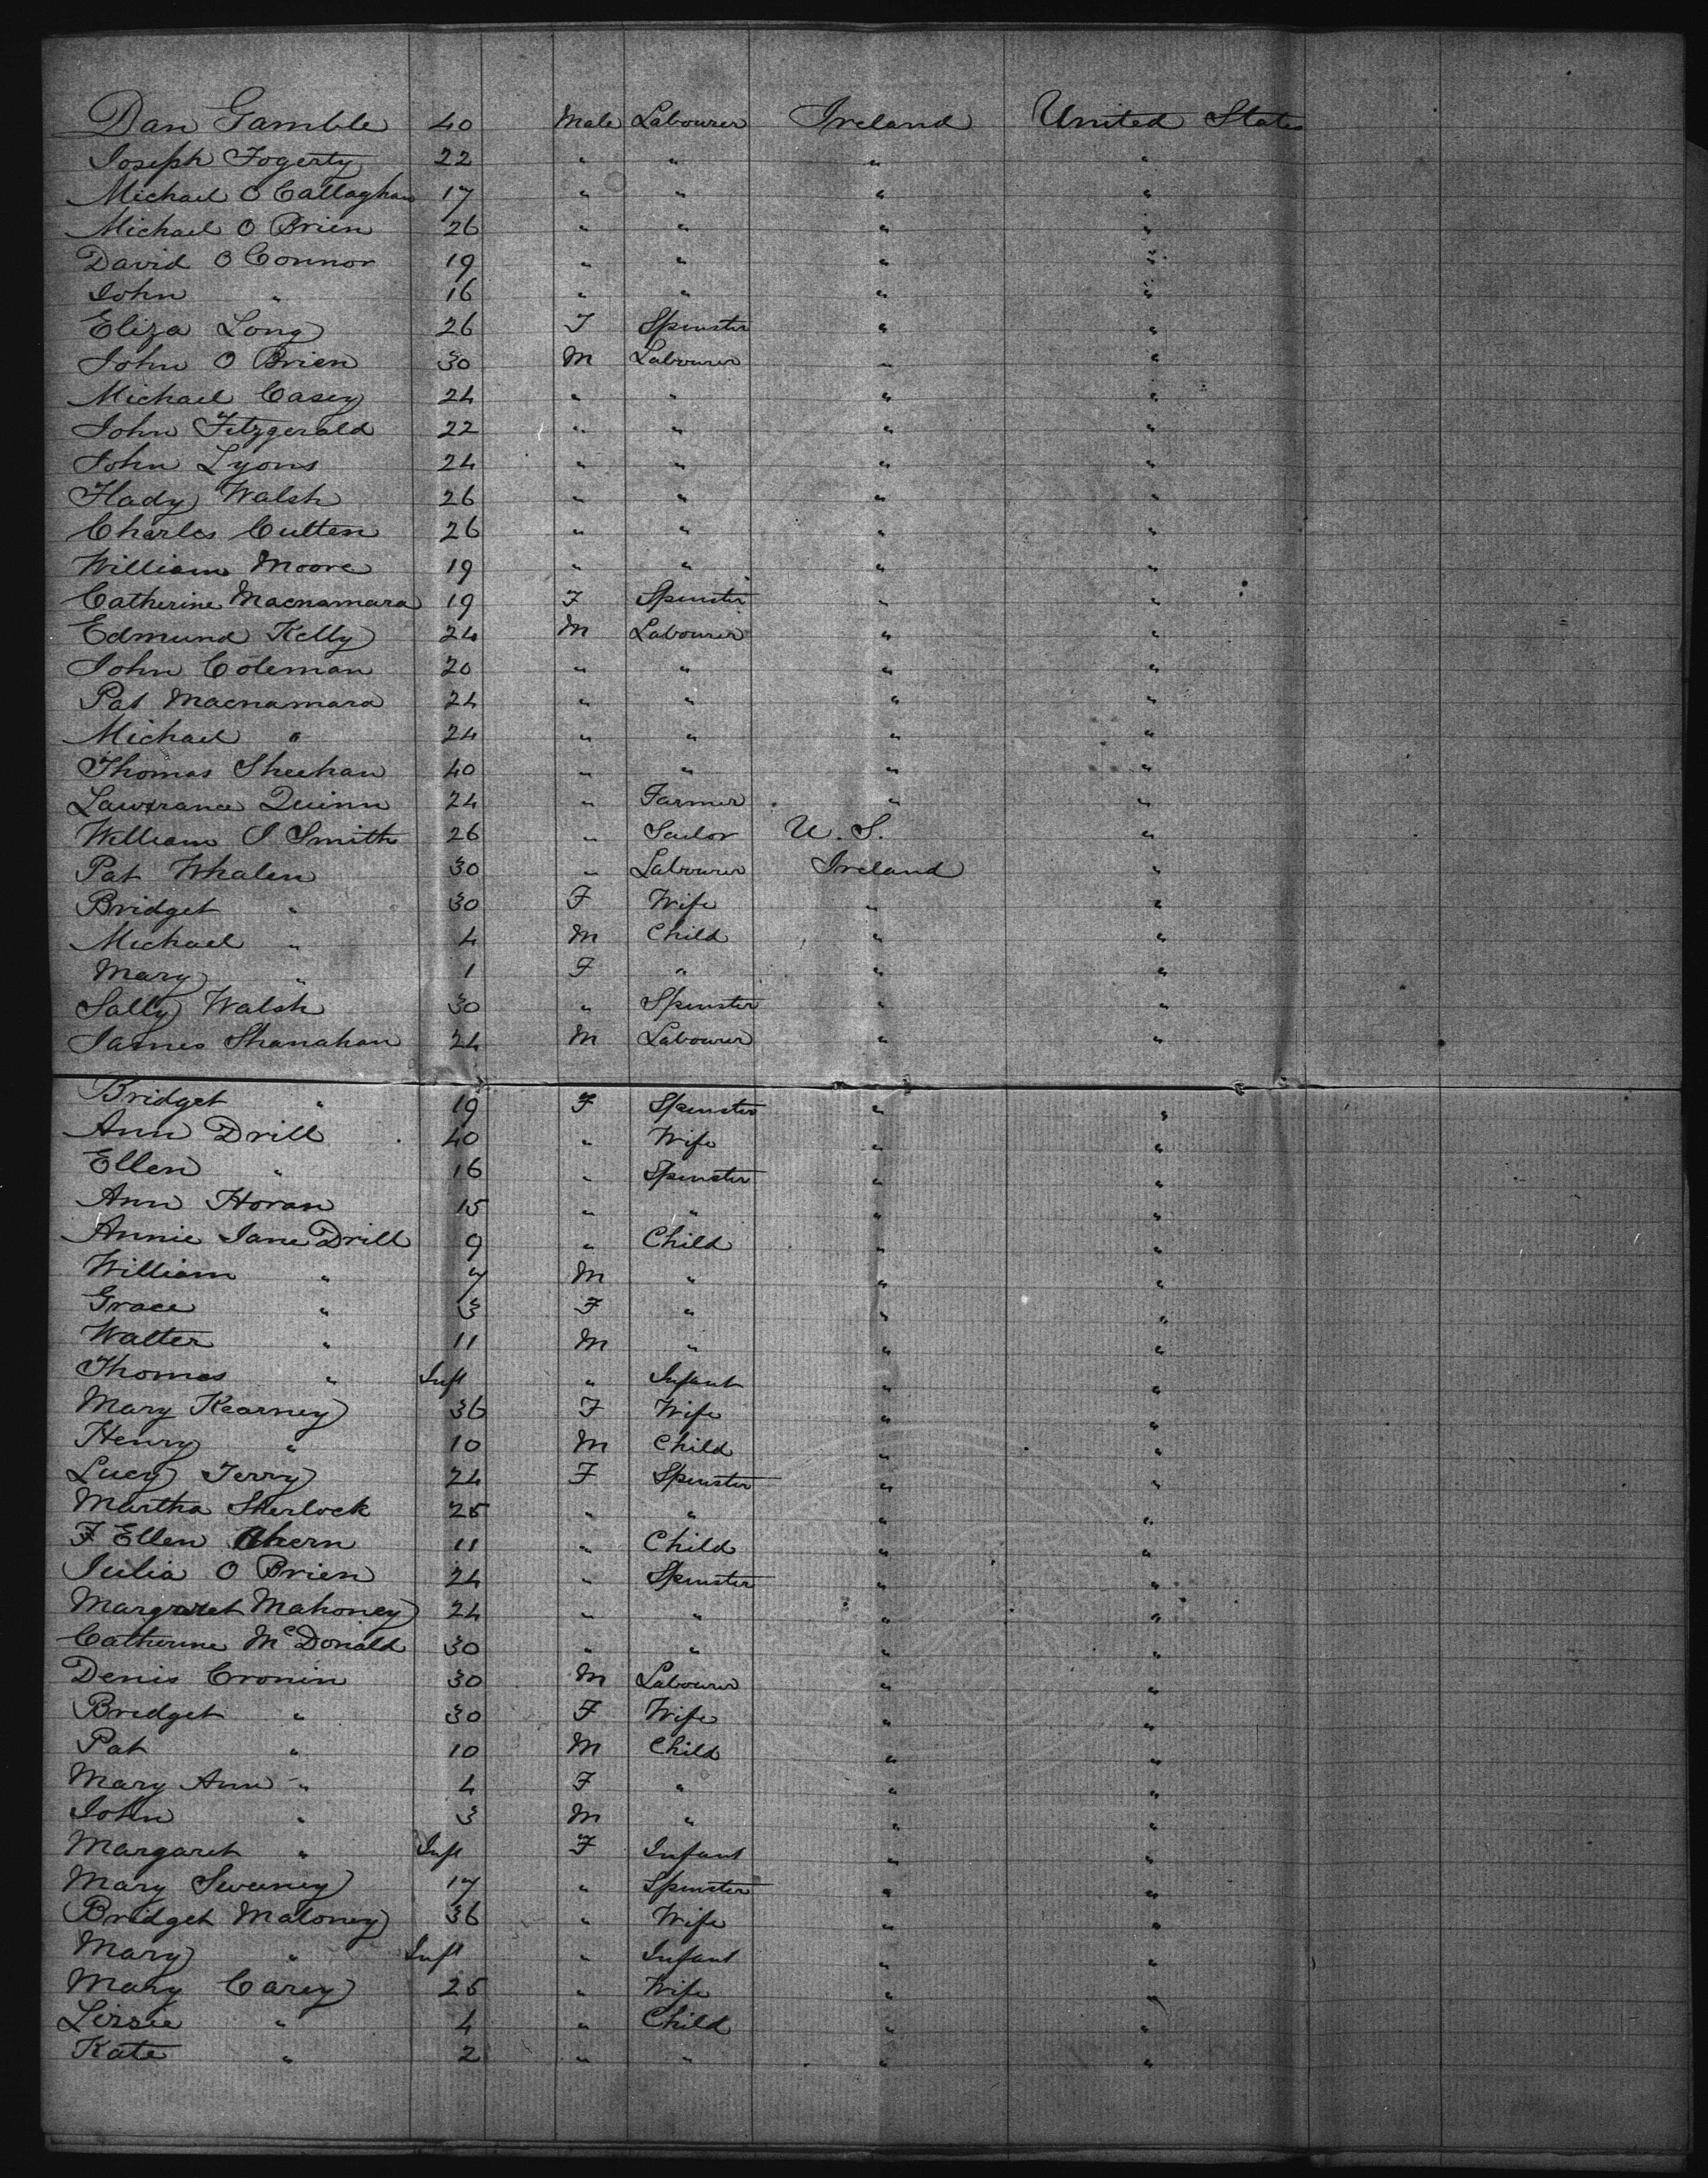 Dan Gamble 40 Male Labourer Ireland United States
Joseph Fogerty 22 " " " "
Michael O Callaghan 17 " " " "
Michael O Brien 26 " " " "
David O Connor 19 " " " "
John " 16 " " " "
Eliza Long 26 F Spinster " "
John O Brien 30 M Labourer " "
Michael Casey 24 " " " "
John Fitzgerald 22 " " " "
John Lyons 24 " " " "
Walsh 26 " " " "
Charles Cullen 26 " " " "
William Moore 19 " " " "
Catherine Macnamara 19 F Spinster " "
Edmund Kelly 24 M Labourer " "
John Coleman 20 " " " "
Pat Macnamara 24 " " " "
Michael " 24 " " " "
Thomas Sheehan 40 " " " "
Lawrance Quinn 24 " Farmer " "
William J Smith 26 " Sailor U. S. "
Pat Whalen 30 " Labourer Ireland "
Bridget " 30 F Wife " "
Michael " 4 M Child " "
Mary " 1 F " " "
Sally Walsh 30 " Spinster " "
James Shanahan 24 M Labourer " "
Bridget " 19 F Spinster " "
Ann Drill 40 " Wife " "
Ellen " 16 " Spinster " "
Ann Horan 15 " " " "
Annie Jane Drill 9 " Child " "
William " 7 M " " "
Grace " 3 F " " "
Walter " 11 M " " "
Thomas " Inft " Infant " "
Mary Kearney 36 F Wife " "
Henry " 10 M Child " "
Lucy Terry 24 F Spinster " "
Martha Sherlock 25 " " " "
F Ellen Ahern 11 " Child " "
Julia O Brien 24 " Spinster " "
Margaret Mahoney 24 " " " "
Catherine McDonald 30 " " " "
Denis Cronin 30 M Labourer " "
Bridget " 30 F Wife " "
Pat " 10 M Child " "
Mary Ann " 4 F " " "
John " 3 M " " "
Margaret " Inft F Infant " "
Mary Sweeney 17 " Spinster " "
Bridget Maloney 36 " Wife " "
Mary " Inft " Infant " "
Mary Carey 25 " Wife " "
Lizzie " 4 " Child " "
Kate " 2 " " " "